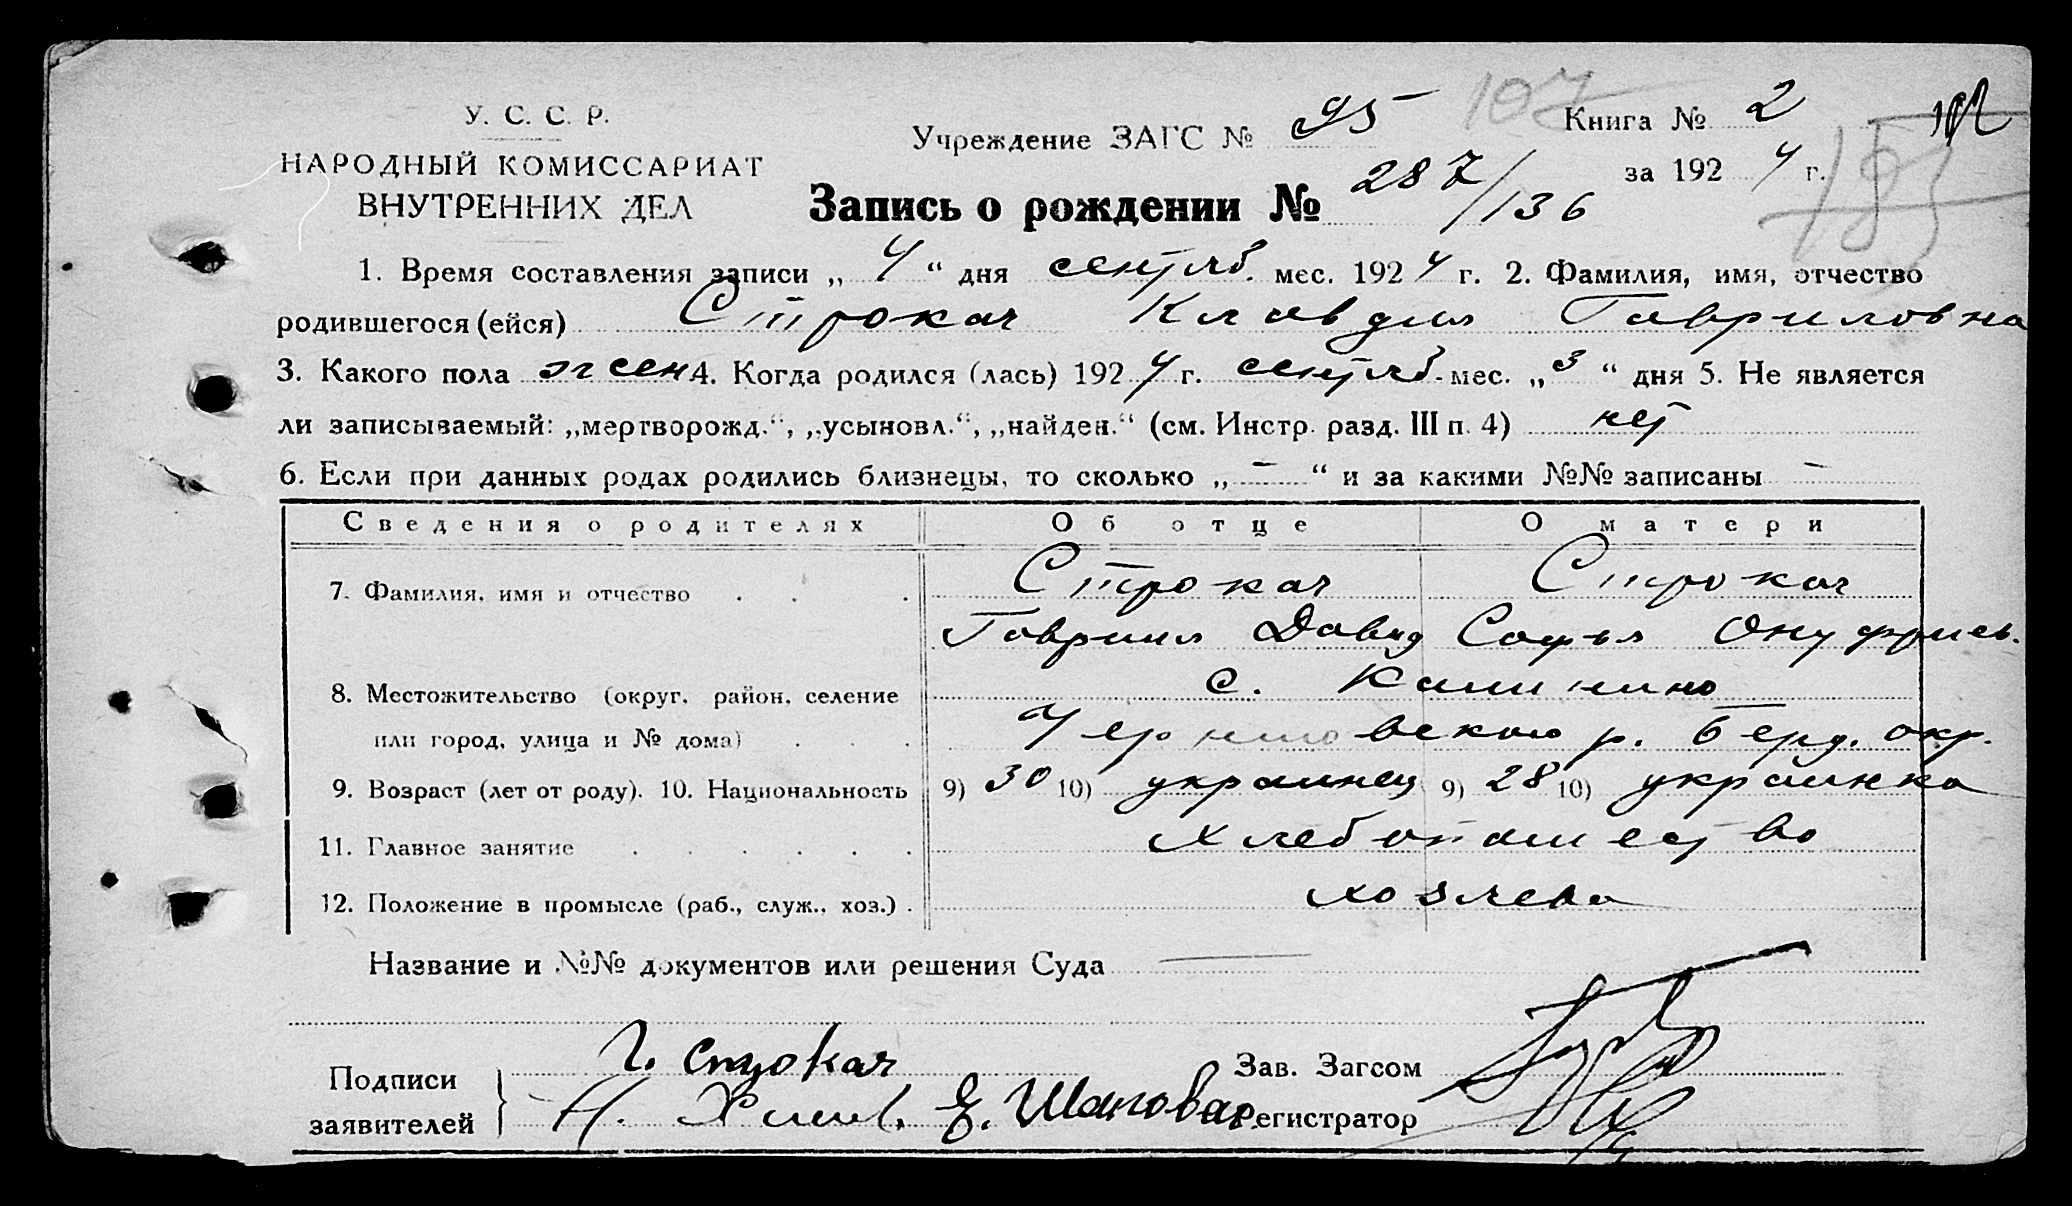 У. С. С. Р.
НАРОДНЫЙ КОМИССАРИАТ
ВНУТРЕННИХ ДЕЛ
Учреждение ЗАГС № 95 107 Книга № 2
за 1924 г.
Запись о рождении № 287/136
1. Время составления записи „4“ дня сентяб. мес. 1924 г. 2. Фамилия, имя, отчество
родившегося (ейся) Строкач Клавдия Гавриловна
3. Какого пола жен 4. Когда родился (лась) 1924 г. сентяб. мес. „3“ дня 5. Не является
ли записываемый: „мертворожд.“, „усыновл.“, „найден.“ (см. Инстр. разд. III п. 4) нет
6. Если при данных родах родились близнецы, то сколько „—“ и за какими №№ записаны —
Сведения о родителях Об отце О матери
7. Фамилия, имя и отчество Строкач Строкач
Гавриил Давид Софья Онуфриев.
8. Местожительство (округ, район, селение с. Калинино
или город, улица и № дома) Черниговского р. Берд. окр.
9. Возраст (лет от роду). 10. Национальность 9) 30 10) украинец 9) 28 10) украинка
11. Главное занятие Хлебопашество
12. Положение в промысле (раб., служ., хоз.) хозяева
Название и №№ документов или решения Суда —
Подписи
заявителей
Г. Строкач
Е. Шаповал
Зав. Загсом
Регистратор